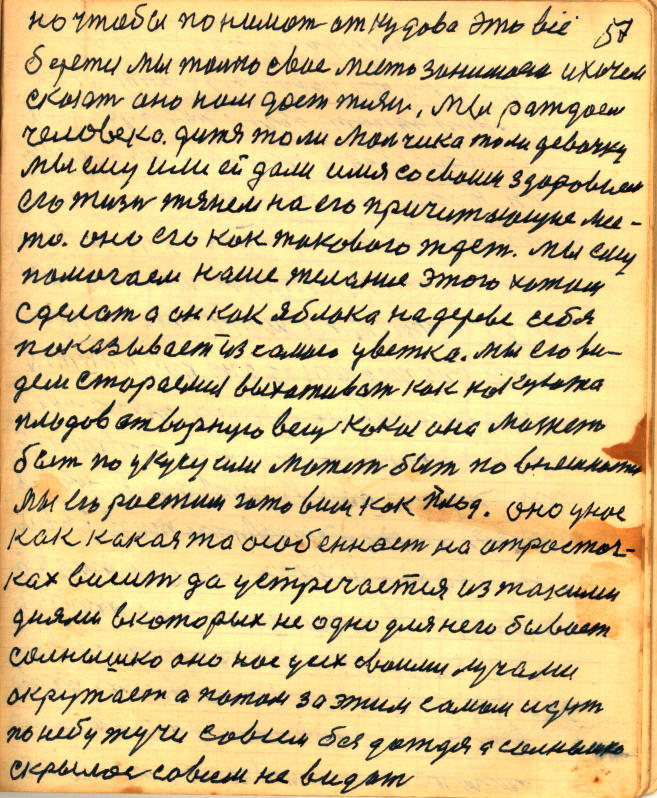 но чтобы понимат откудова это все 57
берется мы толко свое место занимаем и хочем
сказат оно нам дает жизн, мы раждаем
человека. дитя то ли малчика то ли девочку
мы ему или ей дали имя со своим здоровием
его жизн тянем на его причитающуе мес-
то. оно его как такового ждет. мы ему
помагаем наше желание этого хотим
сделат а он как яблока на дереве себя
показывает из самого цветка. мы его ви-
дем стораемся выхаживат как какуюта
плодоватворную вещ какой она может
быт по укусу или может быт по внешности
мы его ростим готовим как плод. оно у нас
как какаята особенност на отросточ-
ках висит да устречается из такими
днями в которых не одно для него бывает
солнышко оно нас усих своими лучами
окружает а потом за этим самым идут
по небу тучи совсем без дождя а солнышко
скрылос совсем не видат